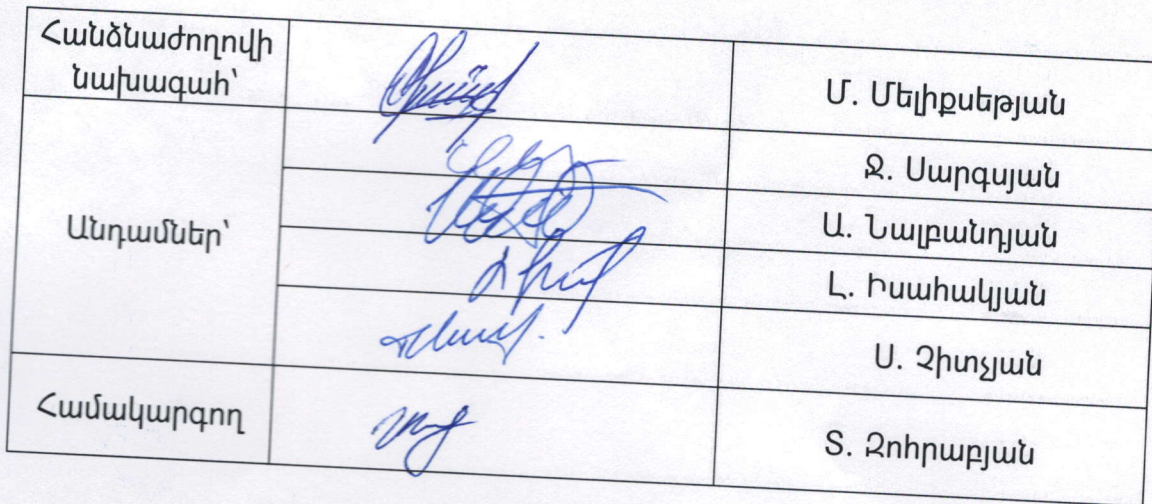 Հանձնաժողովի
նախագահ՝
Մ. Մելիքսեթյան
Անդամներ՝
Ջ. Սարգսյան
Ա. Նալբանդյան
Լ. Իսահակյան
Ս. Չիտչյան
Համակարգող
Տ. Զոհրաբյան